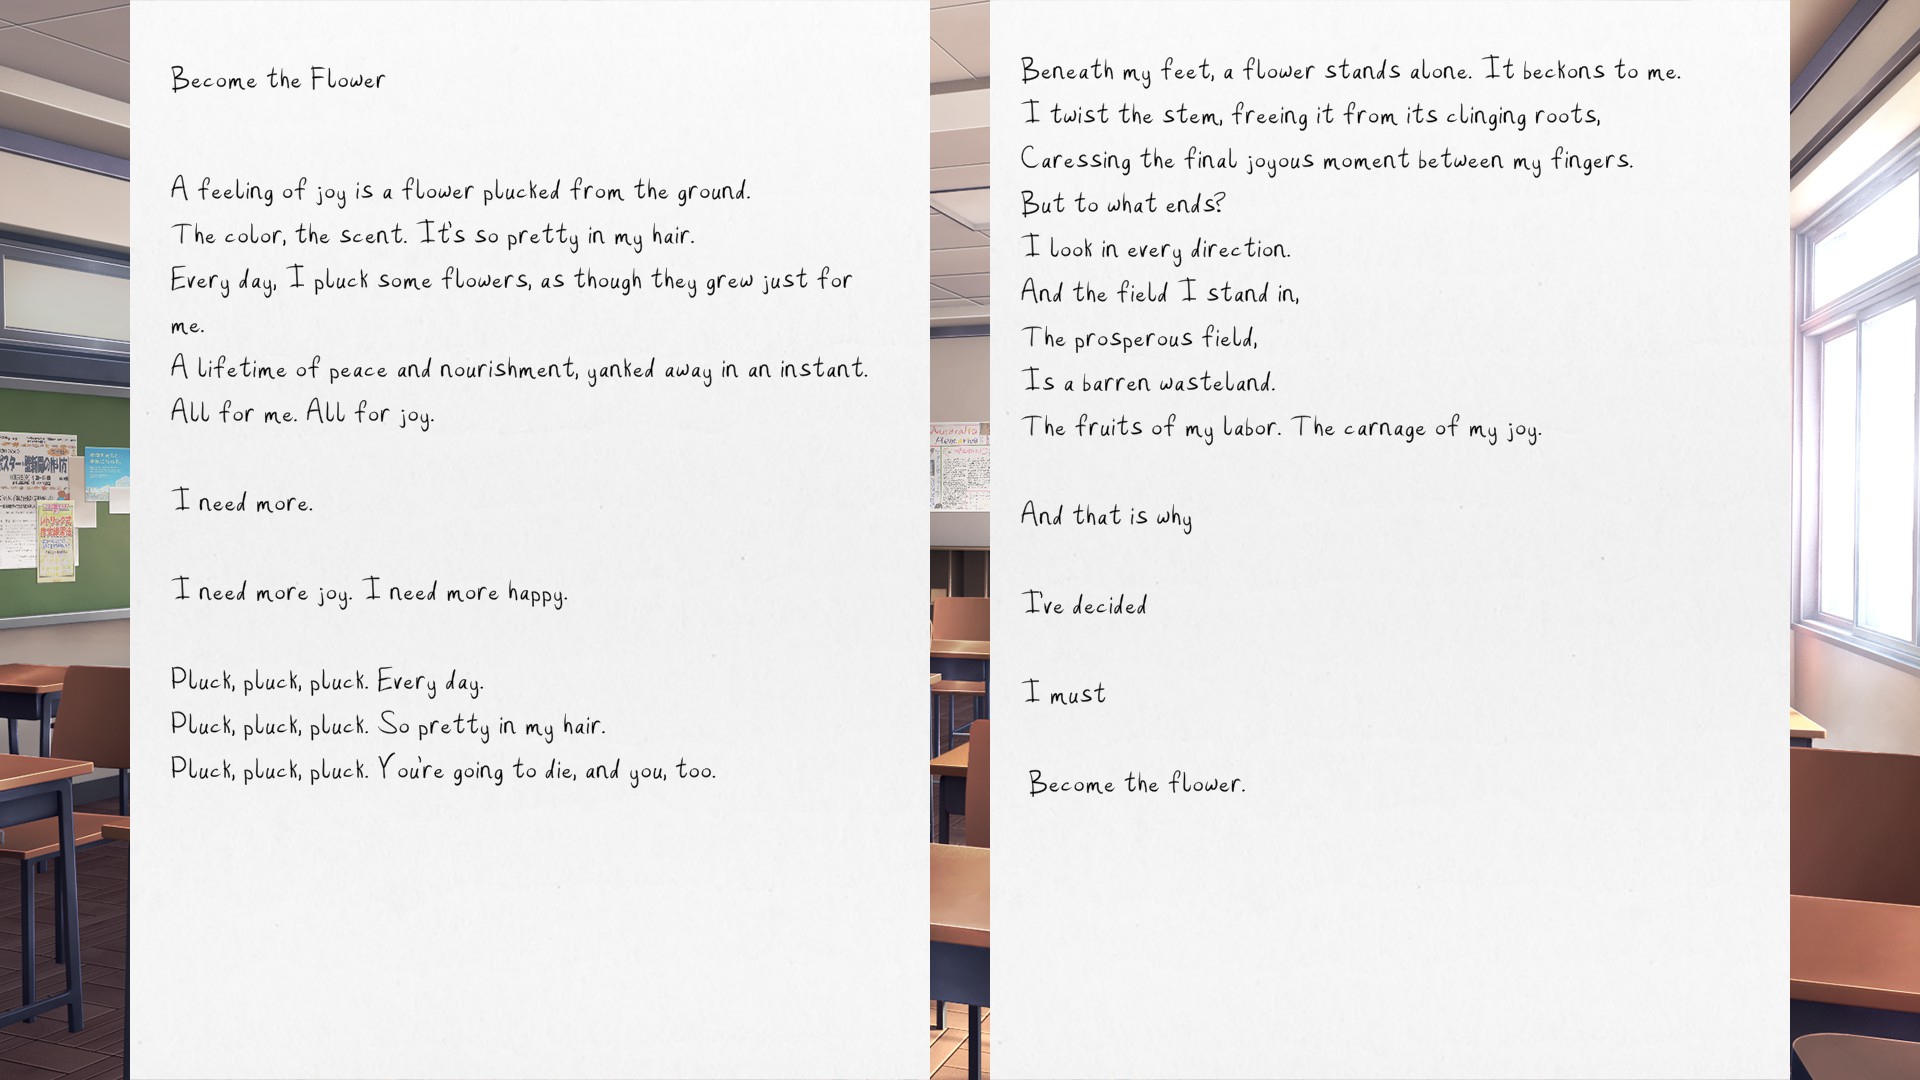 Become the Flower
A feeling of joy is a flower plucked from the ground.
The color, the scent. It's so pretty in my hair.
Every day, I pluck some flowers, as though they grew just for
me.
A lifetime of peace and nourishment, yanked away in an instant.
All for me. All for joy.
I need more.
I need more joy. I need more happy.
Pluck, pluck, pluck. Every day.
Pluck, pluck, pluck. So pretty in my hair.
Pluck, pluck, pluck. You're going to die, and you, too.
Beneath my feet, a flower stands alone. It beckons to me.
I twist the stem, freeing it from its clinging roots,
Caressing the final joyous moment between my fingers.
But to what ends?
I look in every direction.
And the field I stand in,
The prosperous field,
Is a barren wasteland.
The fruits of my labor. The carnage of my joy.
And that is why
I've decided
I must
Become the flower.
Australia